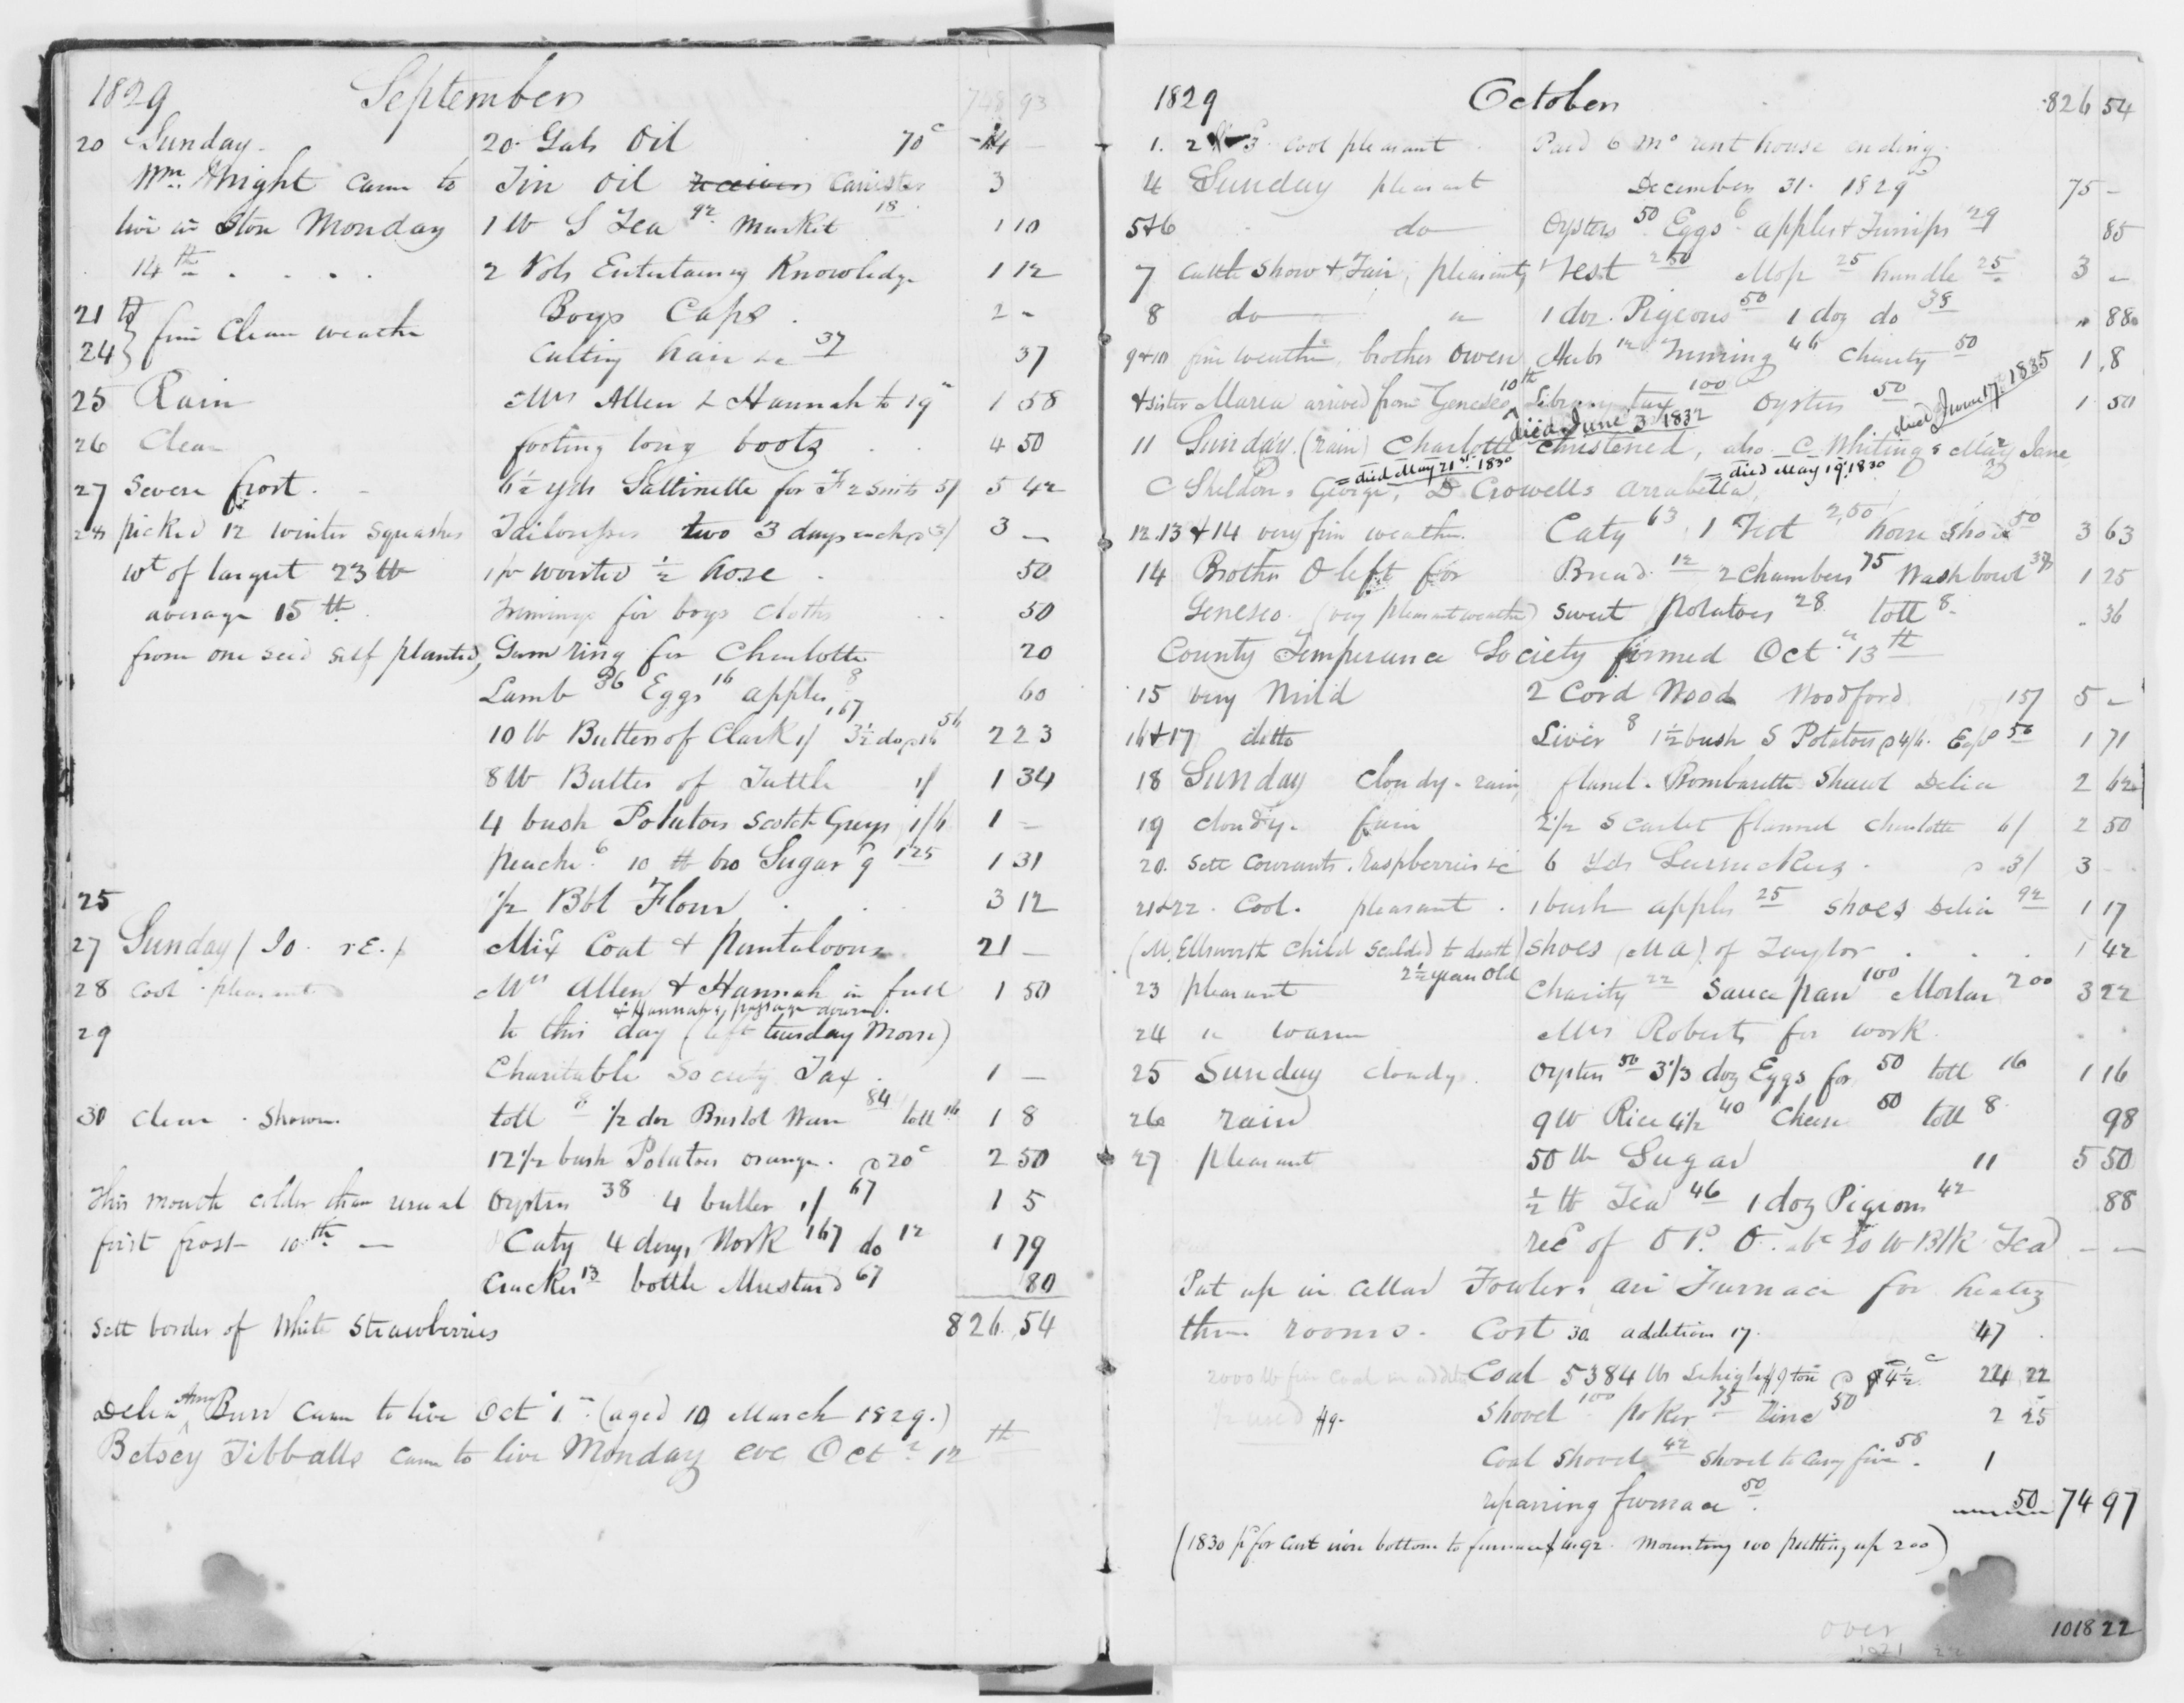 1829 September 748 93
20 Sunday. 20 Gals Oil 70c 14 —
Wm. Knight came to Tin Oil receiver Canister 3
live in Ston Monday 1 lb S Tea 92 Market 18 1 10
14th . . . . 2 Vols Entertaining Knowledge 1 12
21 to Boys Caps . 2 -
24 } fine Clear weather Cutting hair &c 37 37
25 Rain Mrs Allen & Hannah to 19" 1 58
26 Clear footing long boots . . 4 50
27 Severe frost. 6½ yds Sattinette for F 2 Suits 5/ 5 42
28 picked 12 winter squashes Tailoresses two 3 days each 3/ 3 —
wt of largest 23 lb 1 pr worsted ½ hose . 50
average 15 lb. Trimmings for boys cloths . . 50
from one seed self planted, Gum ring for Charlotte 20
Lamb 36 Eggs 16 apples 8 60
10 lb Butter of Clark 1/ 1,67 3½ do p 16 56 2 23
8 lb Butter of Tuttle 1/ 1 34
4 bush Potatoes Scotch Greys 1/6 1 -
peaches 6 10 lb bro Sugar 9 1 25 1 31
25 ½ Bbl Flour . . . 3 12
27 Sunday / Mixt Coat & pantaloons 21 —
28 cool - pleasant Mrs Allen & Hannah in full 1 50
& Hannah's passage down.
29 to this day (left tuesday Morn)
Charitable Society Tax . 1 —
30 clear . Shower. toll 8 ½ doz Bristol Ware 84 toll 16 1 8
12½ bush Potatoes orange. @ 20c 2 50
This month colder than usual Oysters 38 4 butter 1/ 67 1 5
first frost 10th — Caty 4 days Work 167 do 12 1 79
Crackers 13 bottle Mustard 67 80
Sett border of White Strawberries 826,54
Delia Ann Burr came to live Oct 1st (aged 10 March 1829.)
Betsey Tibballs came to live Monday eve Oct 12th
1829 October 826 54
1. 2 & 3. cool pleasant Paid 6 mo rent house ending
4 Sunday pleasant December 31. 1829 75 -
5&6 do Oysters 50 Eggs 6 apples & Turnips 29 85
7 Cattle Show & Fair, pleasant, 1 Vest 2 50 Mop 25 handle 25 3 -
8 do " 1 doz. Pigeons 50 1 doz do 38 " 88
9&10 fine weather, brother Owen Herbs 12 Turning 46 Charity 50 1,8
& sister Maria arrived from Geneseo 10th Library tax 100 Oysters 50 1 50
died June 3 1832 died June 17. 1835
11 Sunday. (rain) Charlotte Christened, also C Whiting's Mary Jane
= died May 21st 1830 = died May 19. 1830
C Sheldons George, D Crowells Arrabella,
12.13 & 14 very fine weather. Caty 63 1 Vest 2,50 horse shoe 50 3 63
14 Brother O left for Bread 12 2 Chambers 75 Wash bowl 37½ 1 25
Geneseo. (very pleasant weather) Sweet Potatoes 28 toll 8 . 36
County Temperance Society formed Oct. 13th
15 very mild 2 Cord Wood Woodford 15/ 5 -
16&17 ditto Liver 8 1½ bush S Potatoes @ 4/6. 50 1 71
18 Sunday cloudy - rain, flanel. Bombazette Shawl Delia 2 62
19 cloudy. fair 2½ Scarlet flannel Charlotte 6/ 2 50
20. Sett Courants, Raspberries &c 6 Yds @ 3/ 3
21&22. Cool. pleasant . 1 bush apples 25 Shoes Delia 92 1 17
(M. Ellsworth Child scalded to death) Shoes (M A) of Taylor . . . 1 42
2½ years old
23 pleasant Charity 22 Sauce pan 100 Mortar 200 3 22
24 " warm Mrs Roberts for work.
25 Sunday cloudy. Oysters 50 3 1/3 doz Eggs for 50 toll 16 1 16
26 rain 9 lb Rice 4½ 40 Cheese 50 toll 8 98
27 pleasant 50 lb Sugar 11 5 50
½ lb Tea 46 1 doz Pigeons 42 .88
rec'd of O P. O. 10 lb Blk Tea — —
Put up in cellar Fowlers air Furnace for heating
three rooms. Cost 30 addition 17. 47
2000 lb fine coal in addition Coal 5384 lbs Lehigh $9 ton 24 22
½ used $9. Shovel 100 poker 75 Zinc 50 2 25
Coal Shovel 42 Shovel to carry fire 58. 1
repairing furnace 50. 50 74 97
(1830 pd for cast iron bottom to furnace 92. Mounting 100 putting up 200)
over 1018 22
1021 22